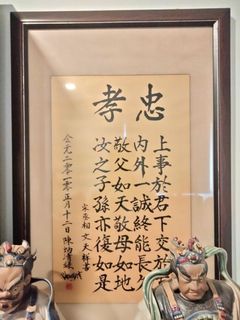 忠孝
上事於君下交於
內外一誠終能長久
敬父如天敬母如地
汝之子孫亦復如是
宋丞相文天祥書
公元二零一零正月十二日陳功